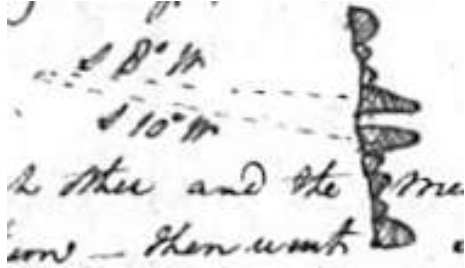 S 8° W
S 10° W
other and the
then went